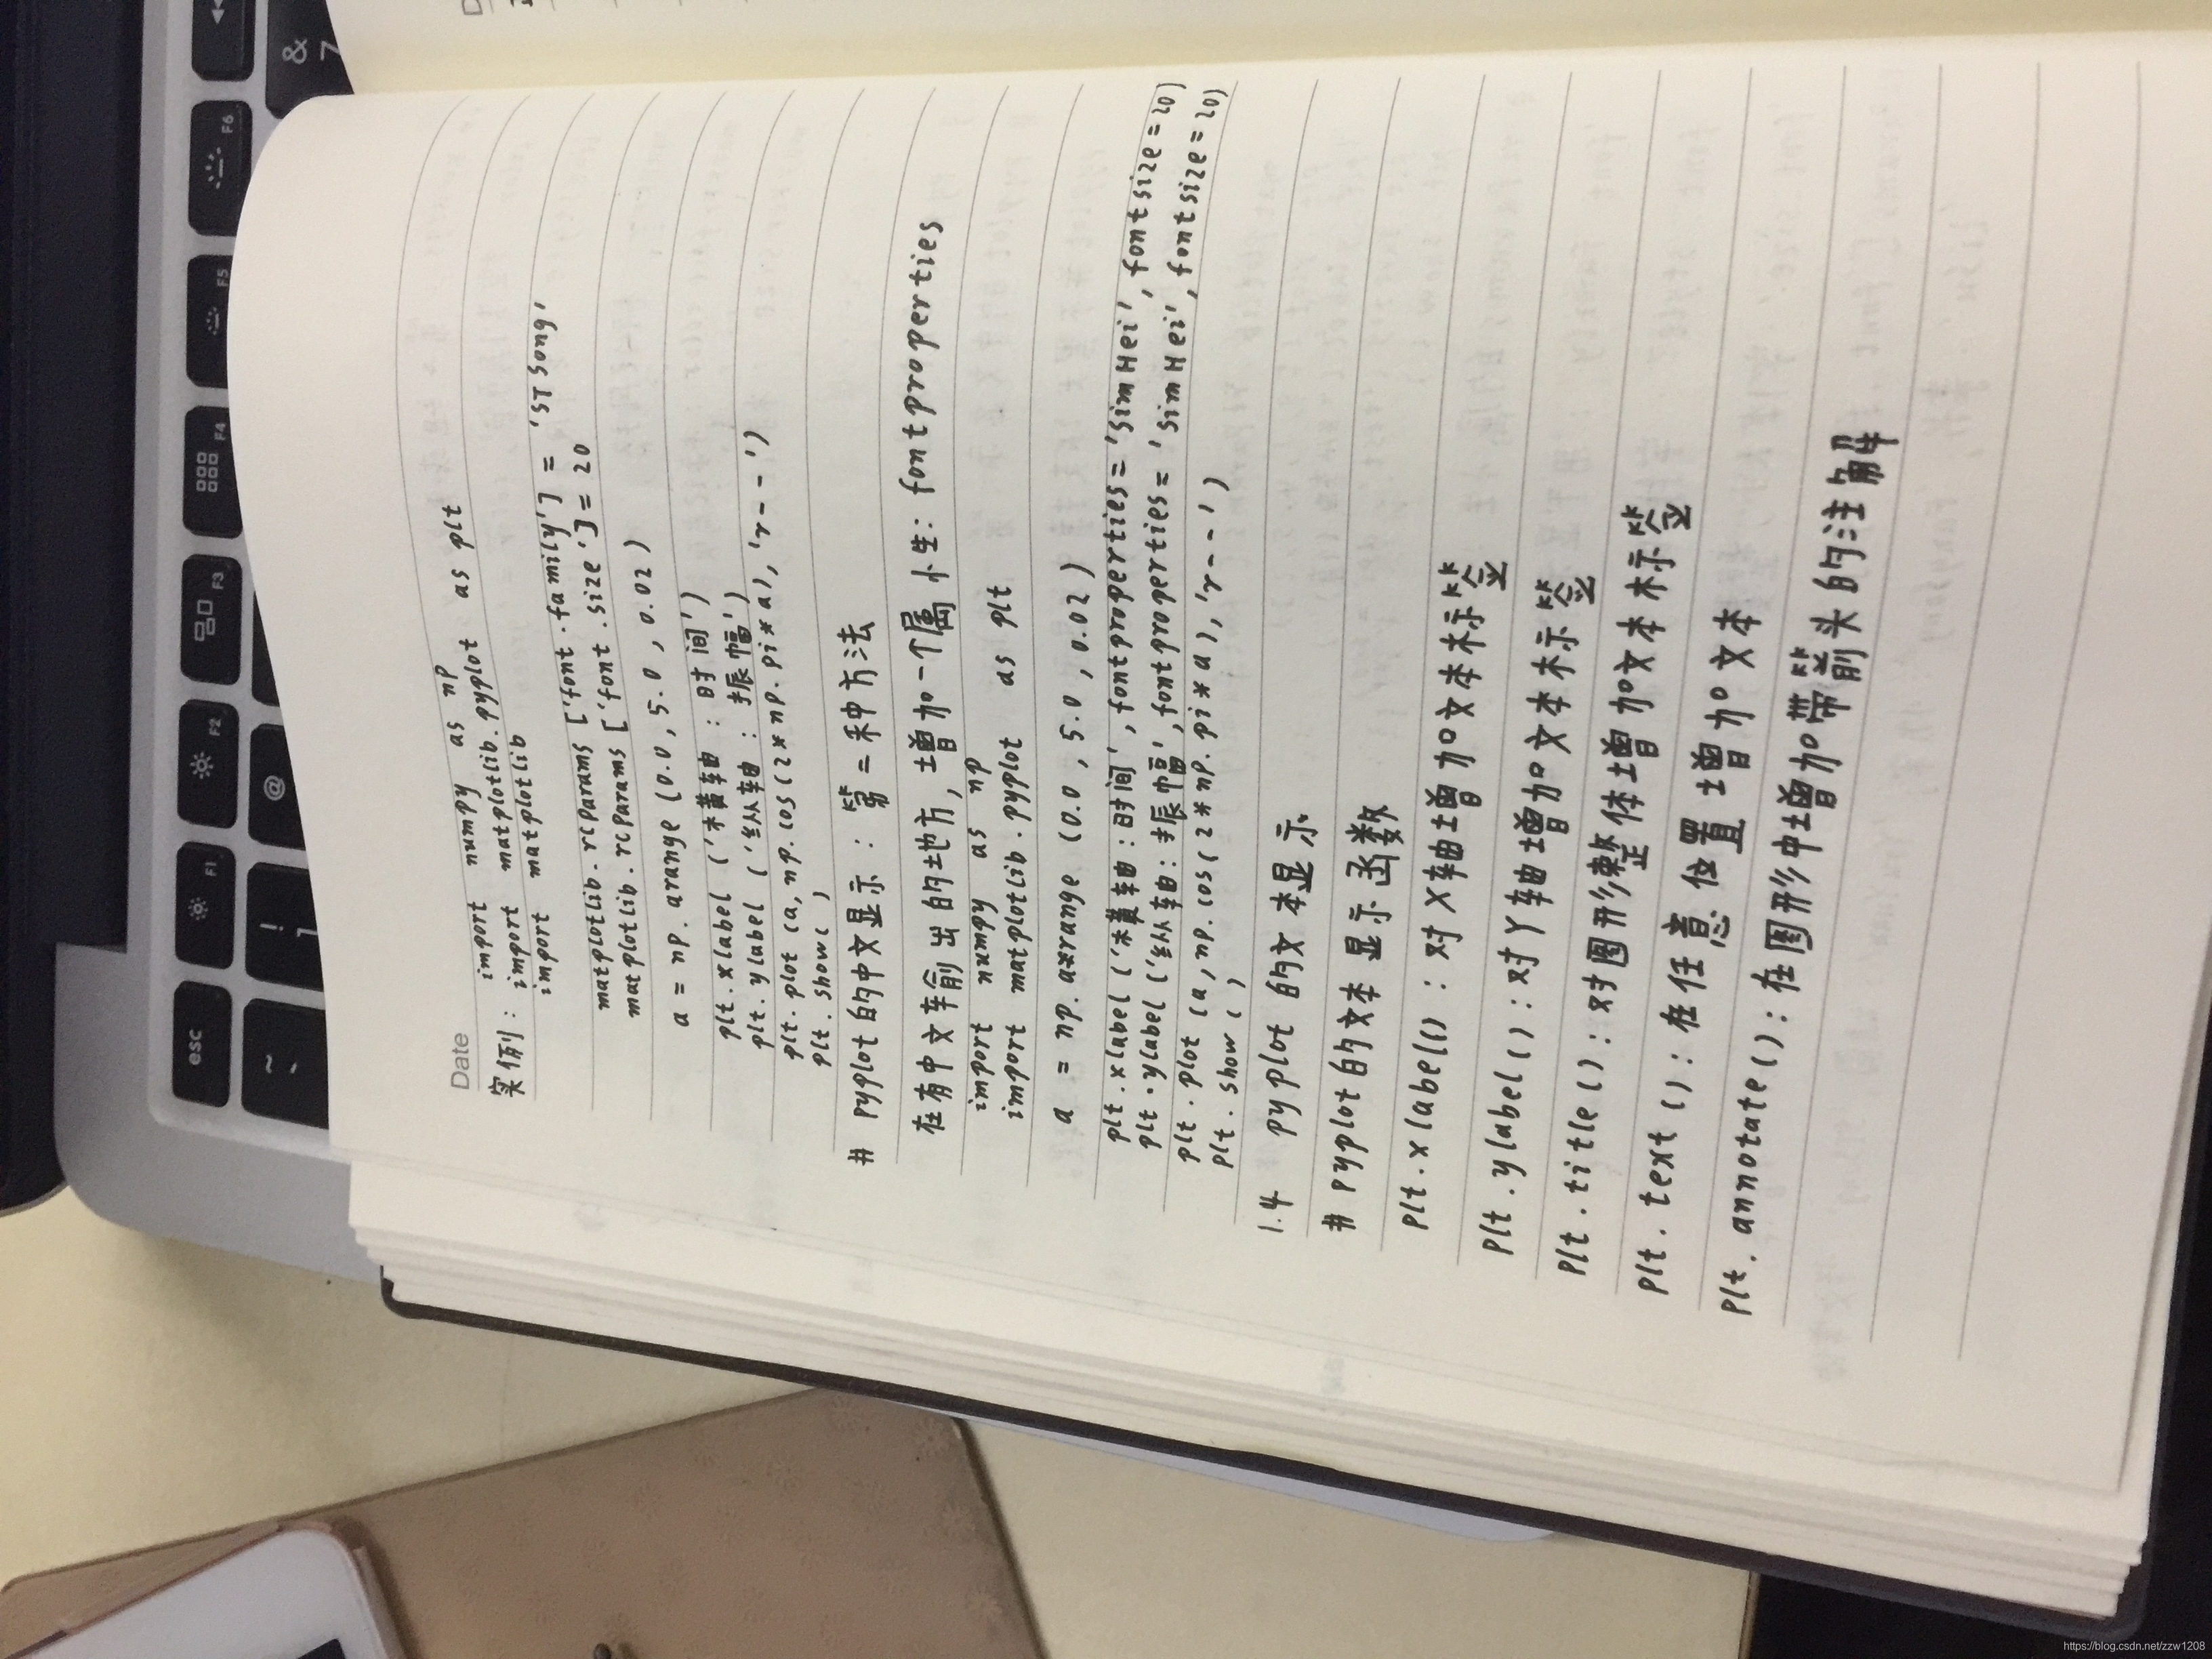 Date
实例: import numpy as np
import matplotlib.pyplot as plt
import matplotlib
matplotlib.rcParams ['font.family'] = 'STSong'
matplotlib.rcParams ['font.size'] = 20
a = np.arange (0.0, 5.0, 0.02)
plt.xlabel ('横轴: 时间')
plt.ylabel ('纵轴: 振幅')
plt.plot (a, np.cos(2*np.pi*a), 'r--')
plt.show()
# pyplot的中文显示: 第二种方法
在有中文输出的地方, 增加一个属性: fontproperties
import numpy as np
import matplotlib.pyplot as plt
a = np.arange (0.0, 5.0, 0.02)
plt.xlabel ('横轴: 时间', fontproperties='SimHei', fontsize=20)
plt.ylabel ('纵轴: 振幅', fontproperties='SimHei', fontsize=20)
plt.plot (a, np.cos(2*np.pi*a), 'r--')
plt.show()
1.4 pyplot的文本显示
# pyplot的文本显示函数
plt.xlabel(): 对X轴增加文本标签
plt.ylabel(): 对Y轴增加文本标签
plt.title(): 对图形整体增加文本标签
plt.text(): 在任意位置增加文本
plt.annotate(): 在图形中增加带箭头的注解
esc
F1
F2
F3
F4
F5
F6
~
!
1
@
&
7
https://blog.csdn.net/zzw1208